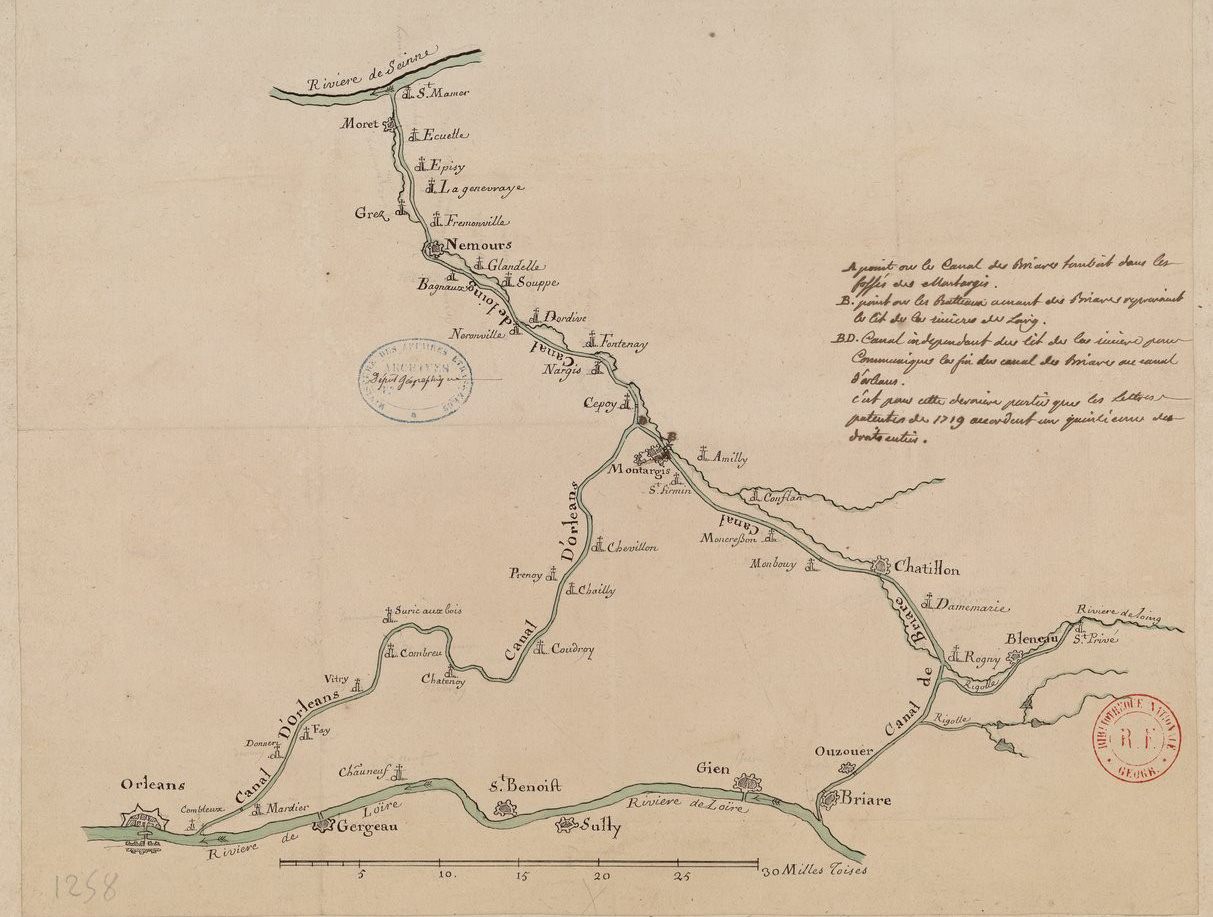 Riviere de Seinne
St. Mamer
Moret
Ecuelle
Episy
La genevraye
Grez
Fremonville
Nemours
Glandelle
Bagnaux
Souppe
Canal de loing
Dordive
Neronville
Fontenay
Nargis
Cepoy
B
Montargis
Amilly
St. firmin
Conflan
Canal de Briare
Moncreßon
Monbouy
Chatillon
Damemarie
Riviere de loing
Bleneau
St. Privé
Rogny
Rigolle
Rigolle
Ouzouer
Briare
Canal D'orleans
Chevillon
Prenoy
Chailly
Coudroy
Suric aux bois
Combreu
Chatenoy
Vitry
Canal D'Orleans
Fay
Donneri
Orleans
Combleux
Mardier
Chauneuf
Gergeau
St. Benoist
Sully
Gien
Riviere de Loire
Riviere de Loire
A point ou le Canal de Briare tombait dans les
fossés de Montargis.
B. point ou les Batteaux venant de Briare
le lit de la riviere de Loing.
BD. Canal independant du lit de la riviere pour
Communiquer la fin du canal de Briare au canal
d'orleans.
c'est pour cette derniere partie que les Lettres
patentes de 1719 accordent un quinzieme des
droits entiers.
ARCHIVES
Dépôt Géographique
BIBLIOTHEQUE NATIONALE
R.F.
GEOGR.
5 10. 15 20 25 30 Milles Toises
1258